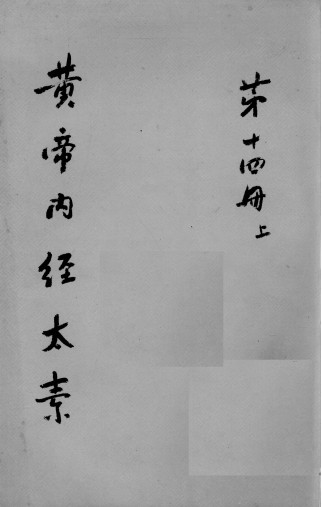 第十四冊上
黄帝内经太素